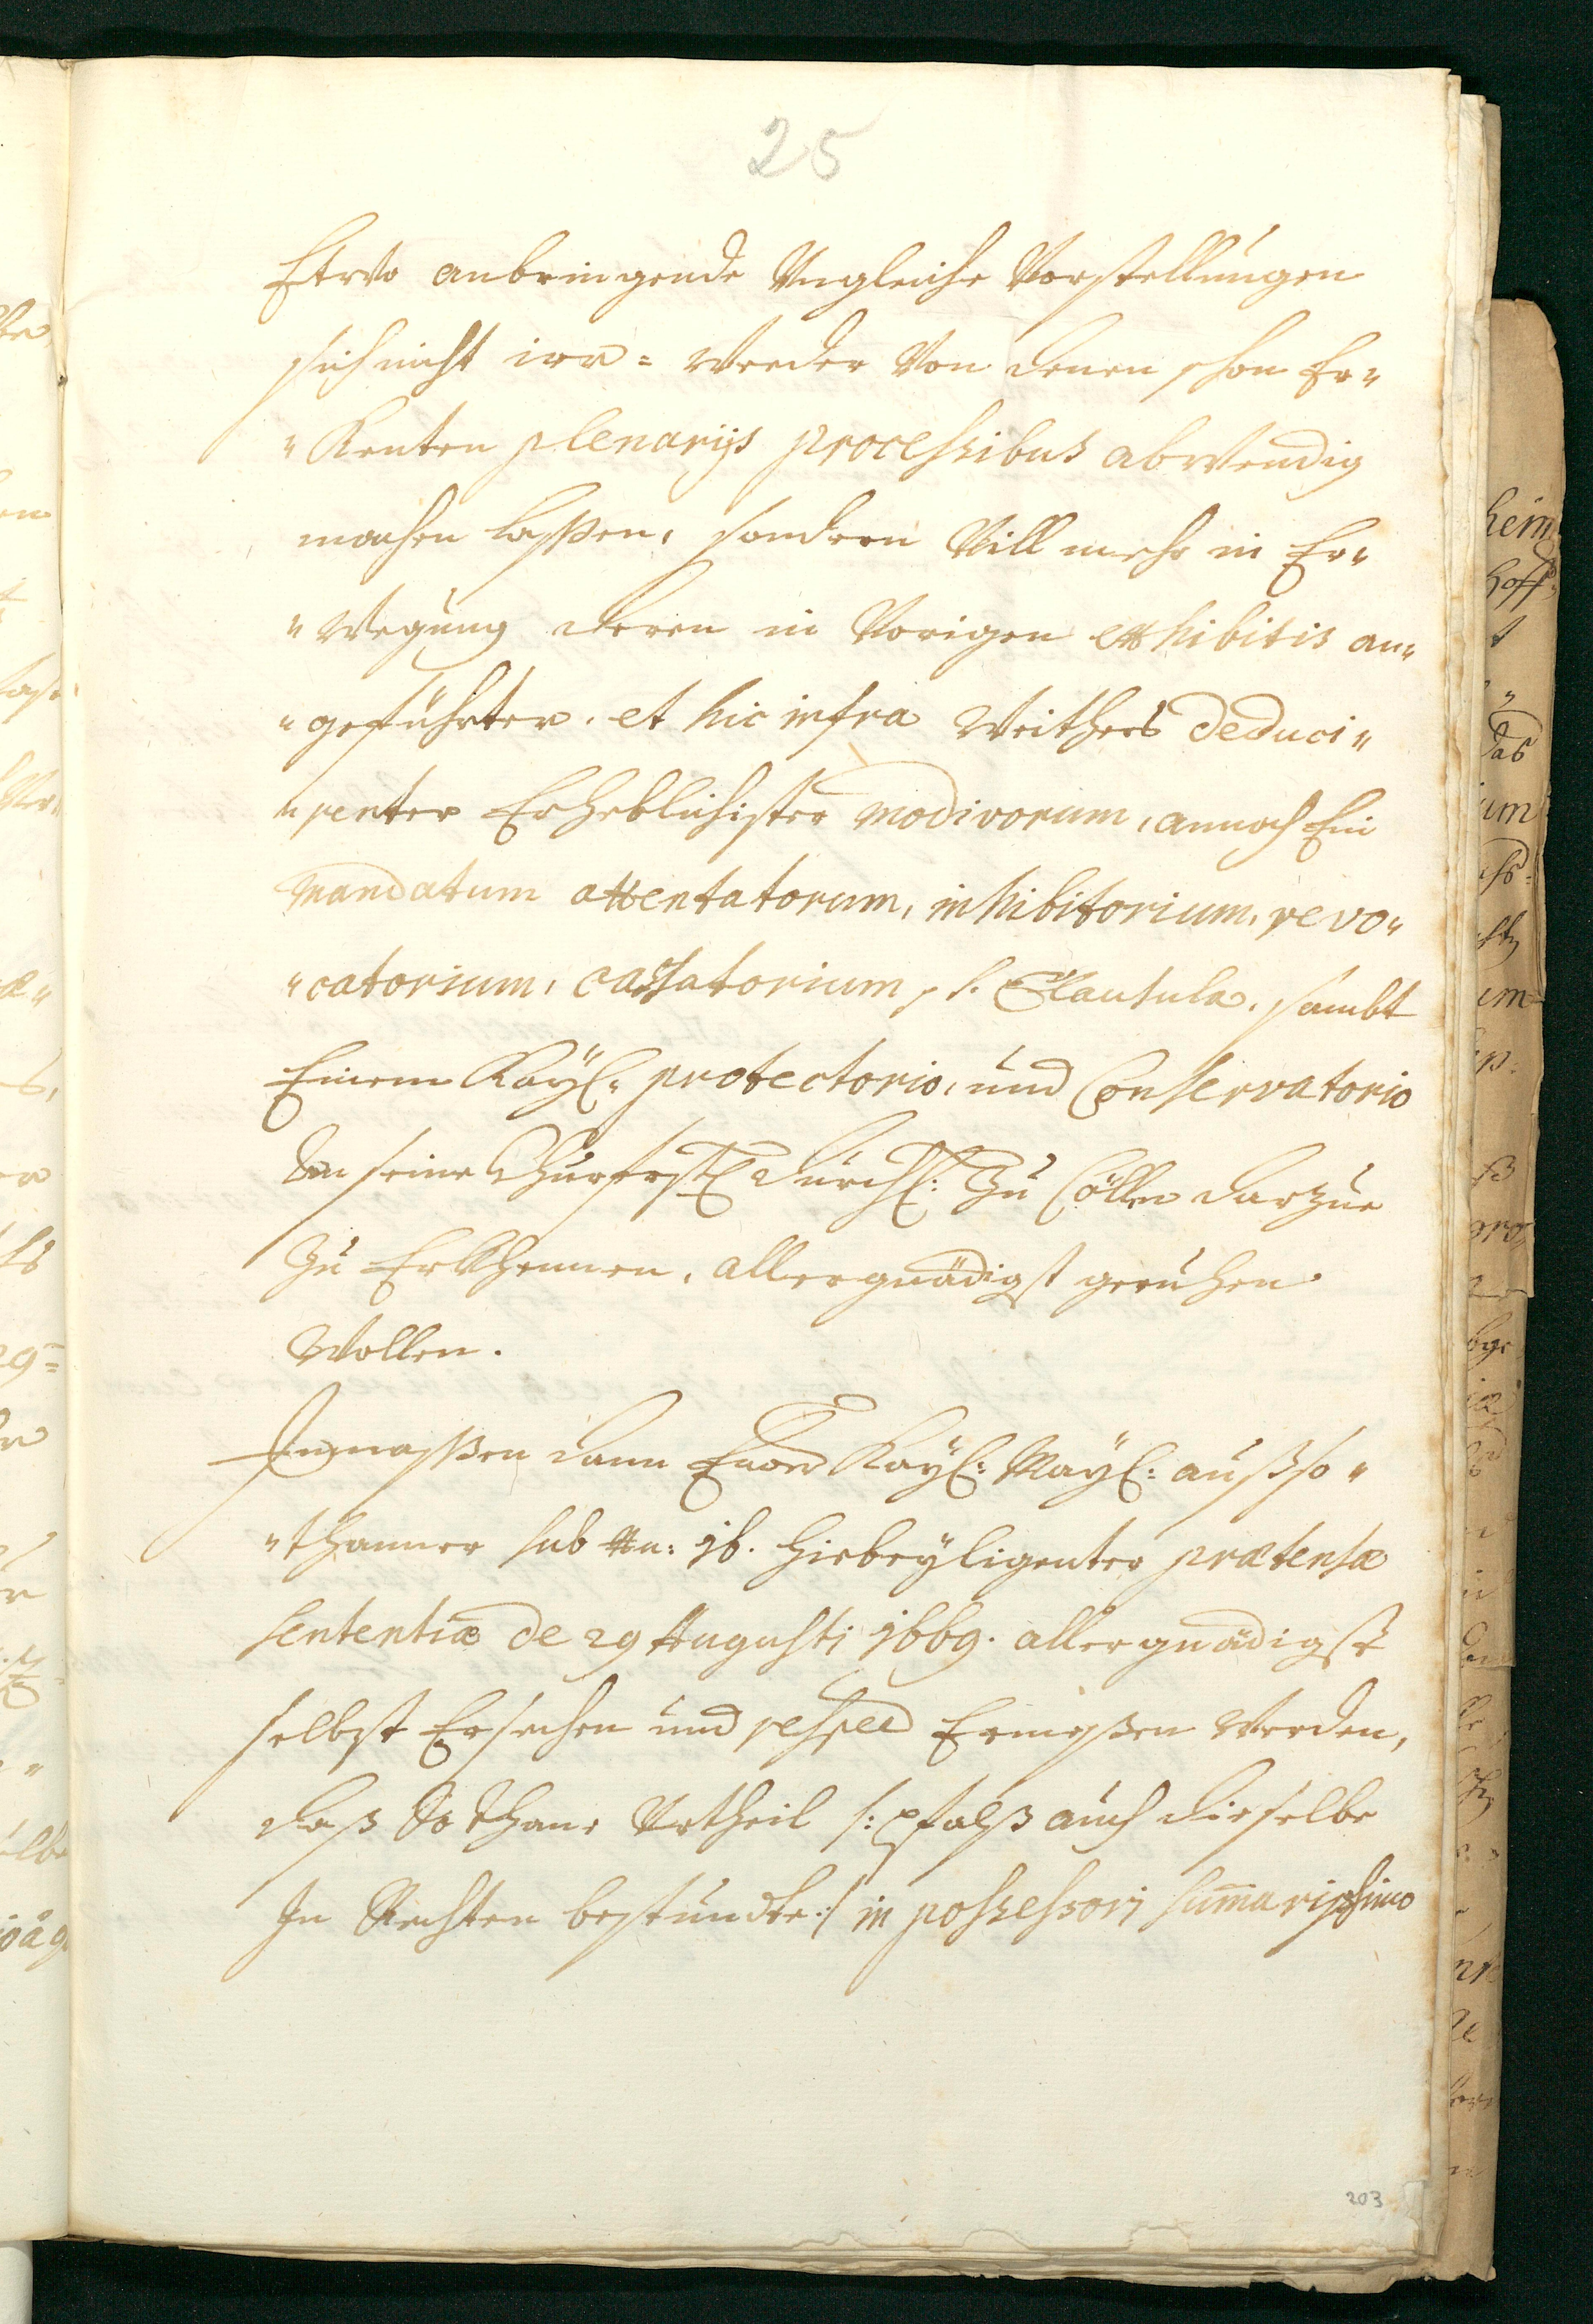 25
Etwo anbringende Ungleiche Vorstellungen
sich nicht irr= weeder Von denen schon Er„
„Kenten plenarijs processibus abwendig
machen lassen, sondern Vill mehr in Er„
„wegung deren in Vorigen exhibitis an„
„geführter, et hic infra weithers deduci„
„renter Erheblichister modivorum, annoch Ein
Mandatum attentatorum, inhibitorium, revo„
„catorium, cassatorium, s. Clausula, sambt
Einem Kayl: protectorio, und Conservatorio
an seine Churfrstl Durchl: Zu Cöllen darzue
Zu Erkhennen, allergnädigst geruhen
wollen.
Inmassen dann Euer Kayl: Mayl: auß so„
„thanner sub N: 16. hiebeyligenter prætensæ
sententiæ de 29 Augusti 1669. allergnädigst
selbst Ersechen und respec Ermessen werden,
daß So thane Urtheil /: pfalß auch dieselbe
In Rechten bestundte :/ in possessorj summarissimo
203